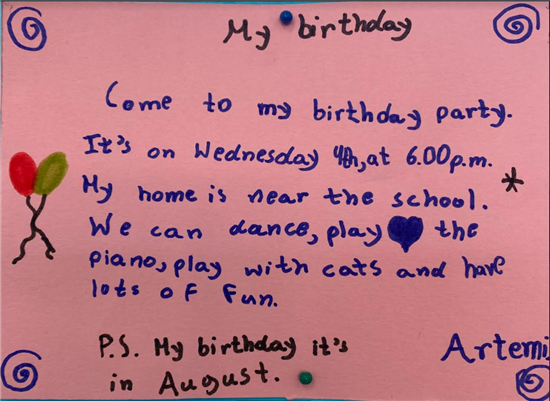 My birthday
Come to my birthday party.
It's on Wednesday 4th, at 6.00p.m.
My home is near the school.
We can dance, play the
piano, play with cats and have
lots of fun.
P.S. My birthday it's
in August.
Artemi